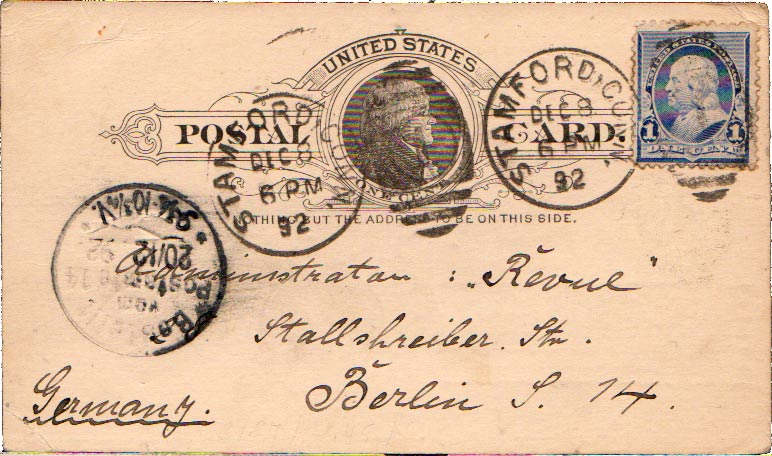 UNITED STATES
POSTAL CARD.
ONE CENT
NOTHING BUT THE ADDRESS TO BE ON THIS SIDE.
STAMFORD, CONN.
DEC 8
6 PM
92
STAMFORD, CONN.
DEC 8
6 PM
92
1 1
ONE CENT
20/12
92
Administration : „Revue"
Stallshreiber. Str.
Berlin S. 14.
Germany.